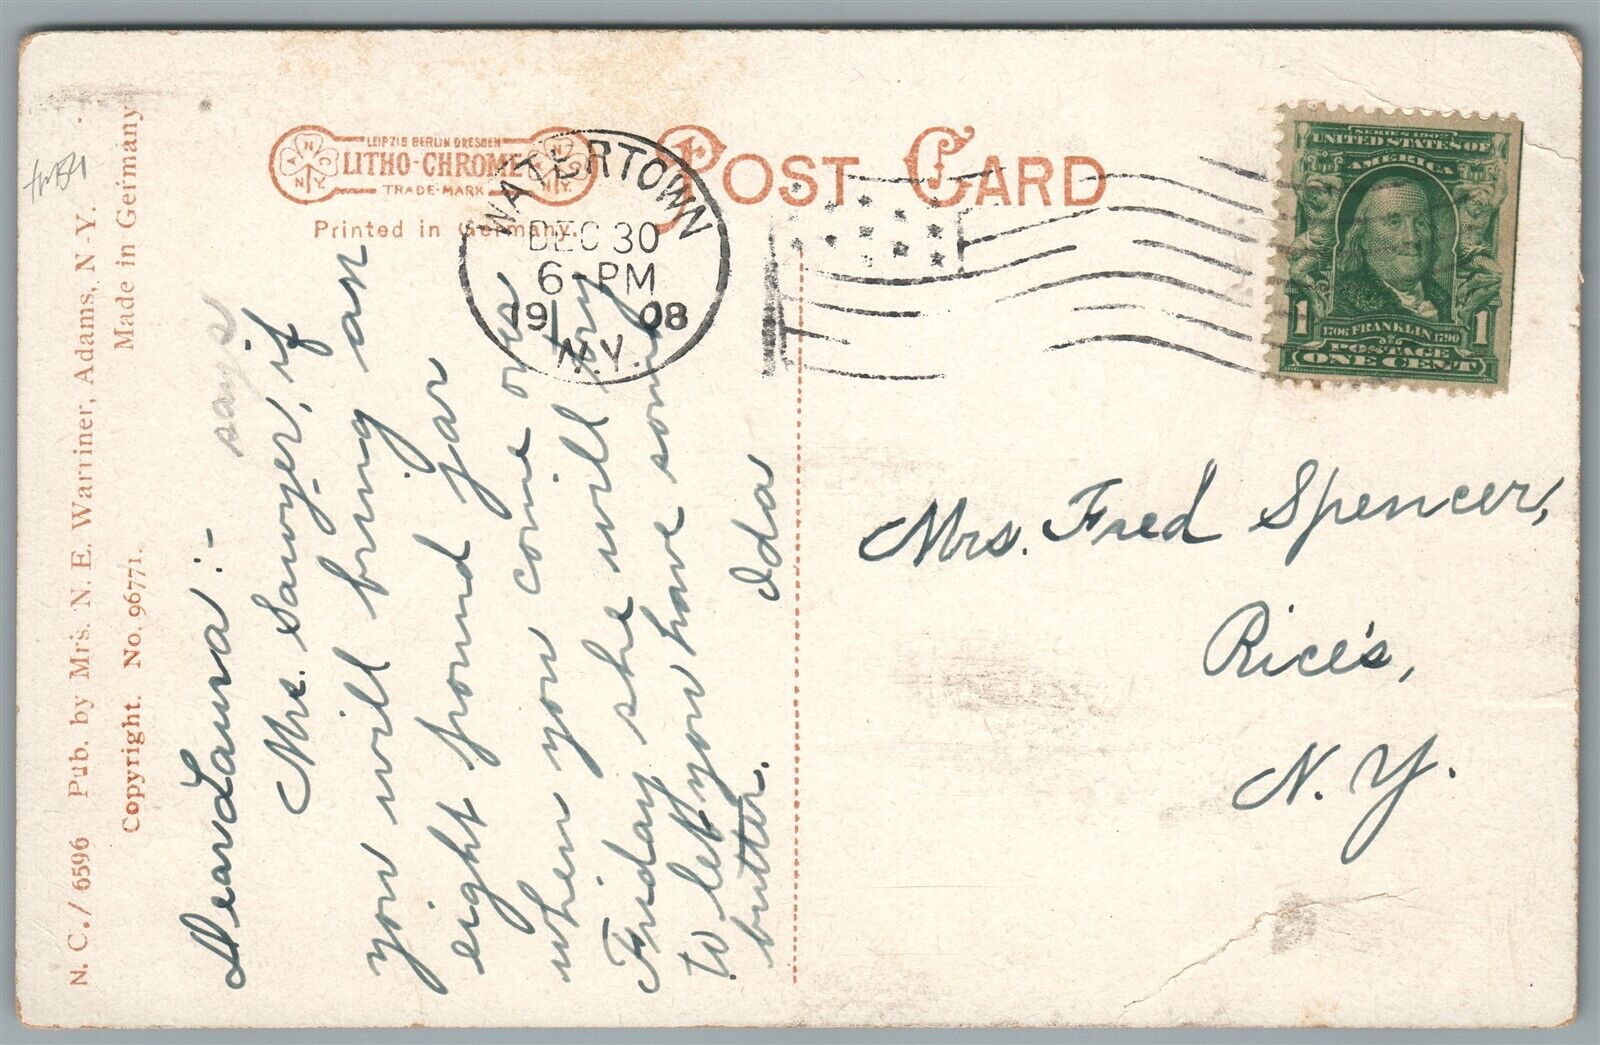 N. C./ 6596 Pub. by Mrs. N. E. Warriner, Adams, N. Y.
Copyright. No. 96771. Made in Germany
LEIPZIG BERLIN DRESDEN
LITHO-CHROME
TRADE-MARK
A N C N.Y.
A N C N.Y.
Printed in Germany.
POST CARD
WATERTOWN
DEC 30
6-PM
1908
N.Y.
SERIES 1902
UNITED STATES OF
AMERICA
1706 FRANKLIN 1790
1 POSTAGE 1
ONE CENT
Dear Laura:-
says
Mrs. Sawyer, if
you will bring an
eight pound jar
when you come over
Friday she will try
to let you have some
butter. Ida
Mrs. Fred Spencer,
Rice's,
N. Y.